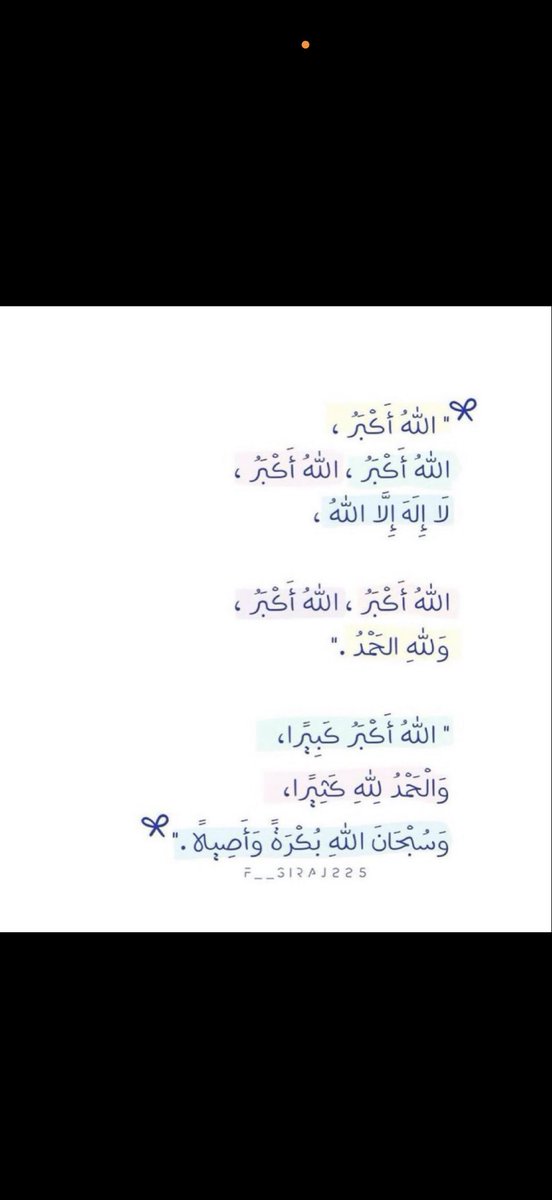 " اللهُ أَكْبَرُ ،
اللهُ أَكْبَرُ ، اللهُ أَكْبَرُ ،
لَا إِلَهَ إِلَّا اللهُ ،
اللهُ أَكْبَرُ ، اللهُ أَكْبَرُ ،
وَللهِ الحَمْدُ ."
" اللهُ أَكْبَرُ كَبِيرًا،
وَالْحَمْدُ لِلهِ كَثِيرًا،
وَسُبْحَانَ اللهِ بُكْرَةً وَأَصِيلًا ."
F__SIRAJ225